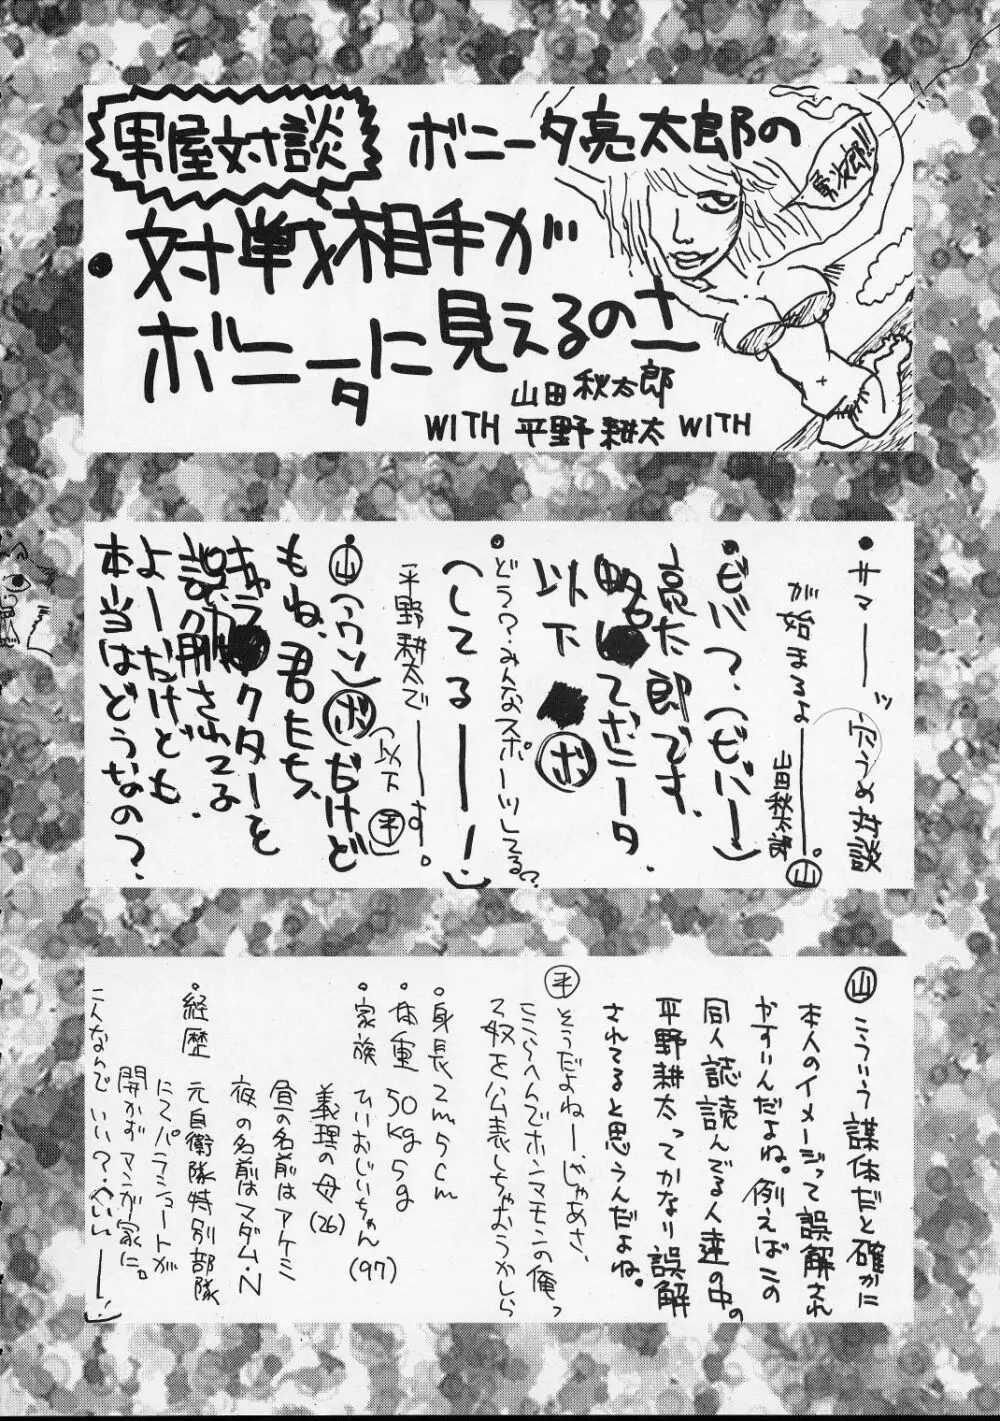 男屋対談
ボニータ亮太郎の
対戦相手が
ボニータに見えるのさ
山田秋太郎
WITH 平野耕太 WITH
・サマーーッ 穴うめ対談
が始まるよーーー。
山田秋太郎 山
・ビバ?、(ビバー)
亮太郎です。
略してボニータ
以下 ボ
・どう?みんなスポーツしてる?
(してるーーー!)
平野耕太でーーーす。
(以下 平)
山(ウン) ボだけど
もね、君たち、
キャラクターを
誤解されてる
よーだけども
本当はどうなの?
山 こういう媒体だと確かに
本人のイメージって誤解され
やすいんだよね。例えばこの
同人誌読んでる人達の中の
平野耕太ってかなり誤解
されてると思うんだよね。
平 そうだよねー、じゃあさ、
ここらへんでホンマモンの俺っ
て奴を公表しちゃおうかしら
・身長 2m5cm
・体重 50kg5g
・家族 ひいおじいちゃん(97)
義理の母(26)
昼の名前はアケミ
夜の名前はマダム・N
・経歴 元自衛隊特別部隊
にてパラシュートが
開かずマンガ家に。
こんなんでいい?